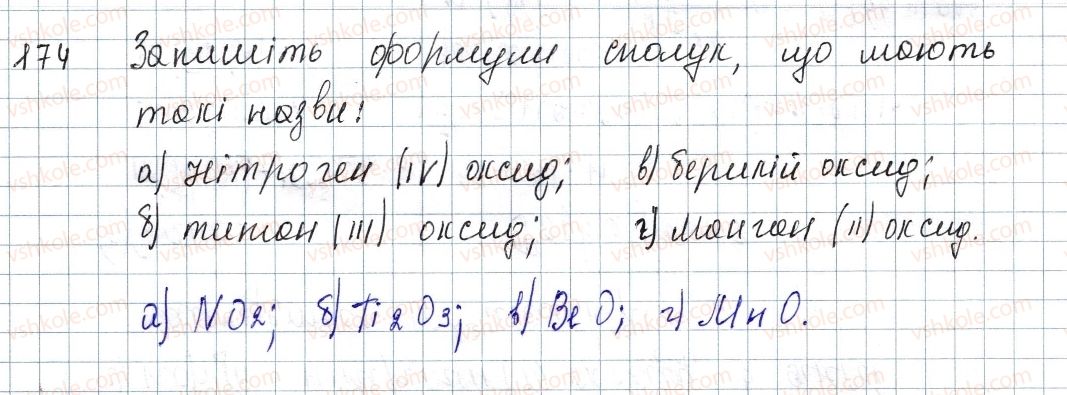 174 Запишіть формули сполук, що мають
такі назви:
а) Нітроген (IV) оксид; в) берилій оксид;
б) титан (III) оксид; г) Манган (II) оксид.
а) NO2; б) Ti2O3; в) BeO; г) MnO.